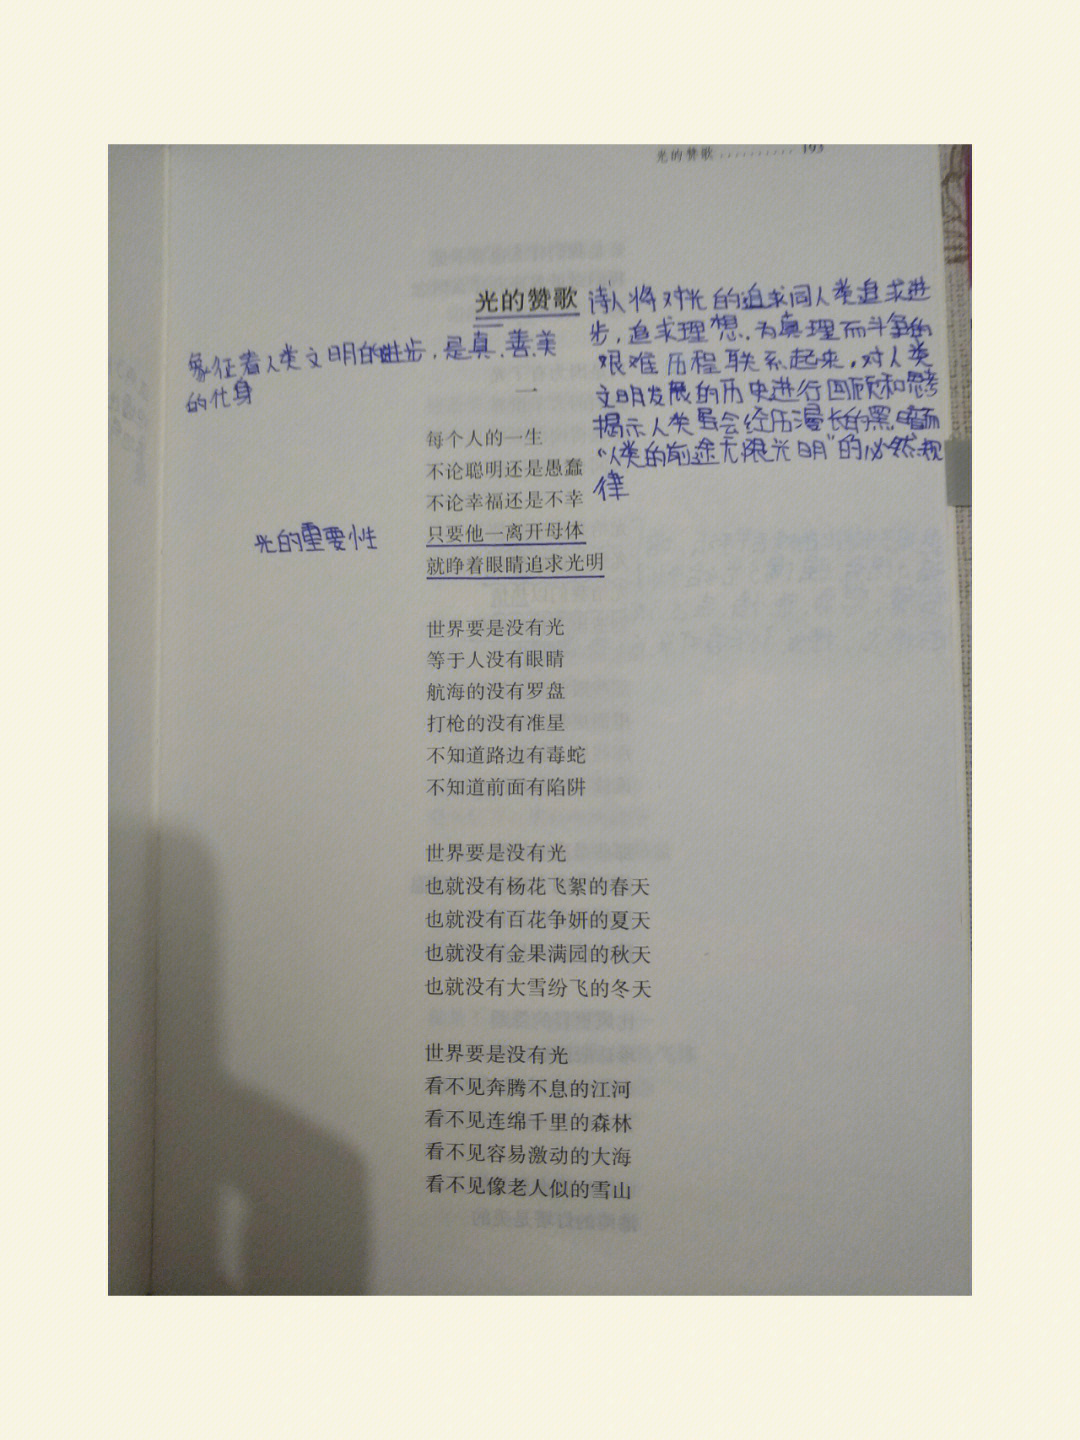 光的赞歌 .......... 193
光的赞歌
诗人将对光的追求同人类追求进
步，追求理想，为真理而斗争的
艰难历程联系起来，对人类
文明发展的历史进行回顾和思考
揭示人类虽会经历漫长的黑暗而
“人类的前途无限光明”的必然规
律
象征着人类文明的进步，是真、善、美
的化身
一
每个人的一生
不论聪明还是愚蠢
不论幸福还是不幸
只要他一离开母体
就睁着眼睛追求光明
光的重要性
世界要是没有光
等于人没有眼睛
航海的没有罗盘
打枪的没有准星
不知道路边有毒蛇
不知道前面有陷阱
世界要是没有光
也就没有杨花飞絮的春天
也就没有百花争妍的夏天
也就没有金果满园的秋天
也就没有大雪纷飞的冬天
世界要是没有光
看不见奔腾不息的江河
看不见连绵千里的森林
看不见容易激动的大海
看不见像老人似的雪山